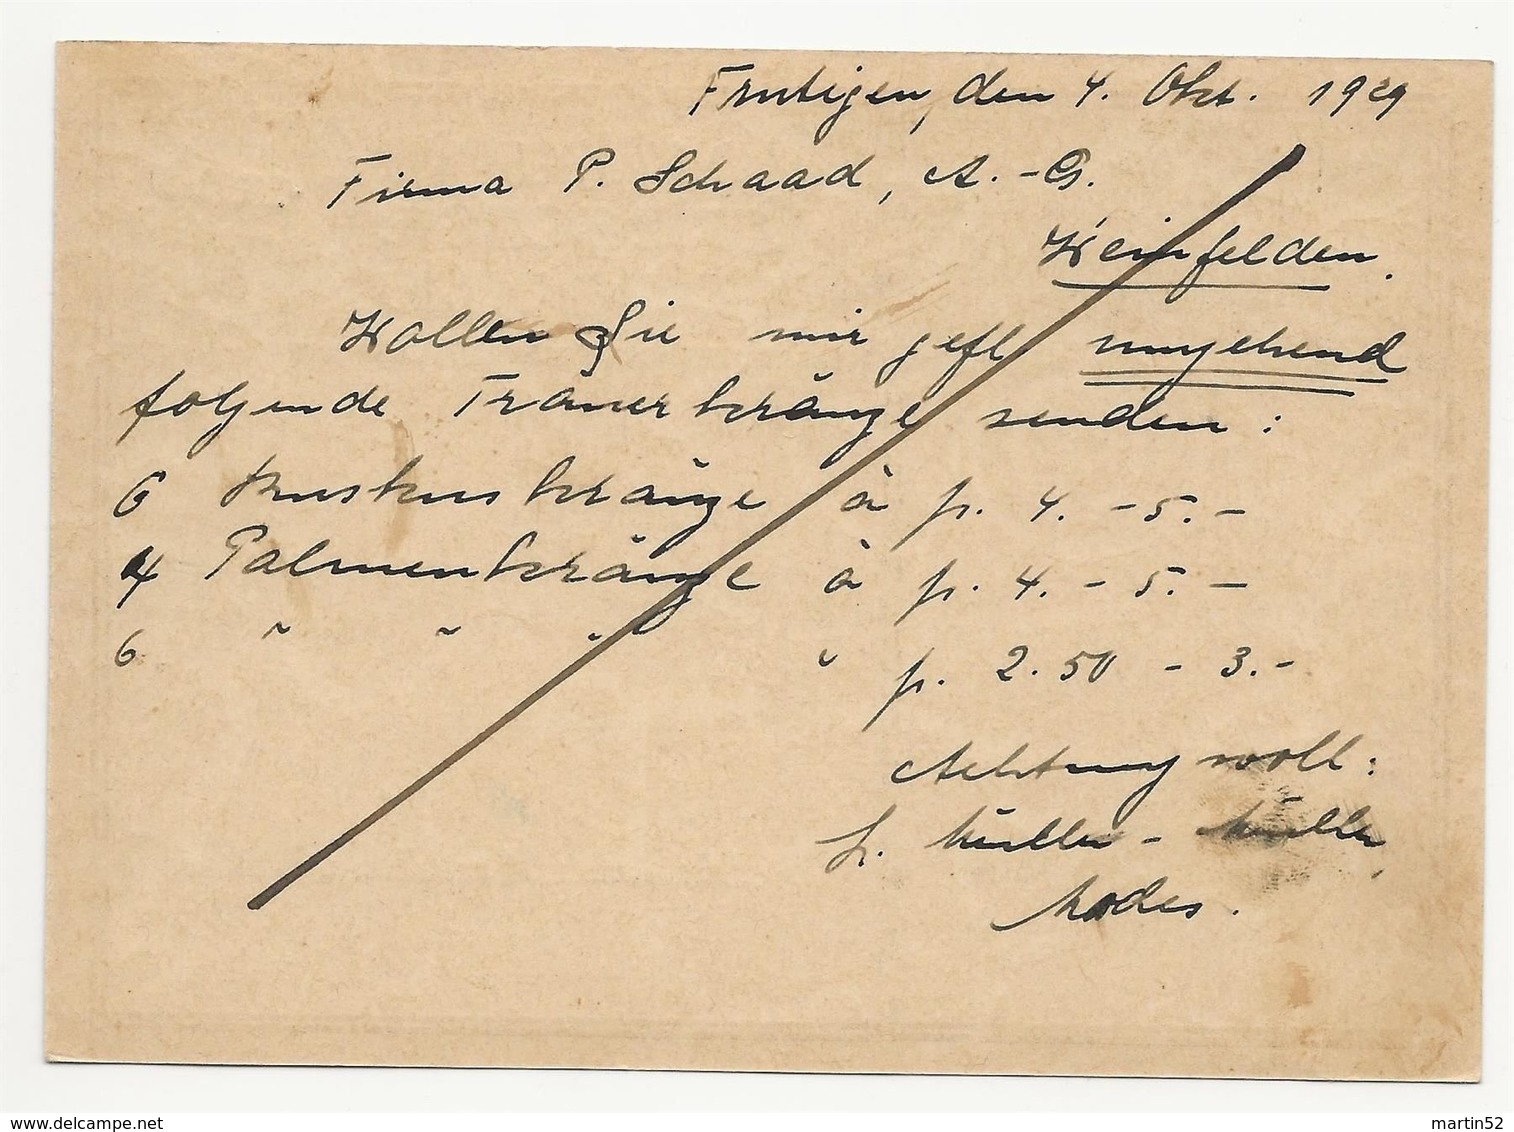 Frutigen, den 4. Okt. 1929
Firma P. Schaad, A.-G.
Weinfelden.
Wollen Sie mir gefl umgehend
folgende Trauerkränze senden:
6 Ruskuskränze à fr. 4.-5.-
4 Palmenkränze à fr. 4.-5.-
6 " " " " fr. 2.50 - 3.-
Achtungsvoll:
L. Müller - Müller,
Modes.
www.delcampe.net
martin52